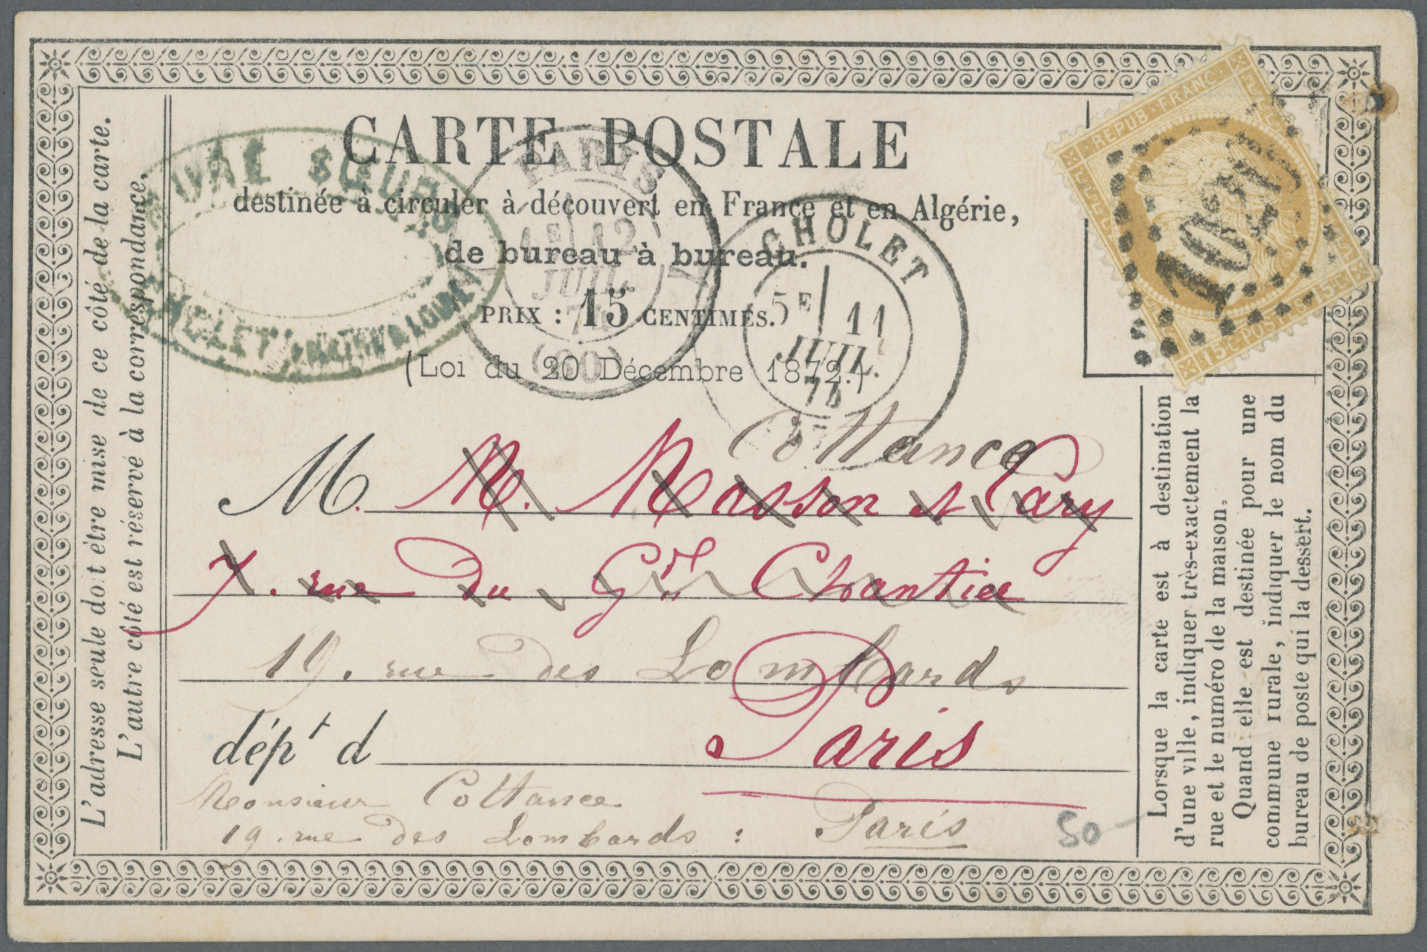 CARTE POSTALE
destinée à circuler à découvert en France et en Algérie,
de bureau à bureau.
PRIX : 15 CENTIMES.
(Loi du 20 Décembre 1872.)
SŒURS
CHOLET
PARIS
1E 12
JUIL.
(60)
CHOLET
5E 11
JUIL.
75
REPUB · FRANC ·
15 c POSTES 15 c
1020
Cottance
M. M. Masson et Cary
7. rue du Gd Chantier
19. rue des Lombards
dépt d Paris
Monsieur Cottance
19. rue des Lombards : Paris
50
L'adresse seule doit être mise de ce côté de la carte.
L'autre côté est réservé à la correspondance.
Lorsque la carte est à destination
d'une ville, indiquer très-exactement la
rue et le numéro de la maison.
Quand elle est destinée pour une
commune rurale, indiquer le nom du
bureau de poste qui la dessert.